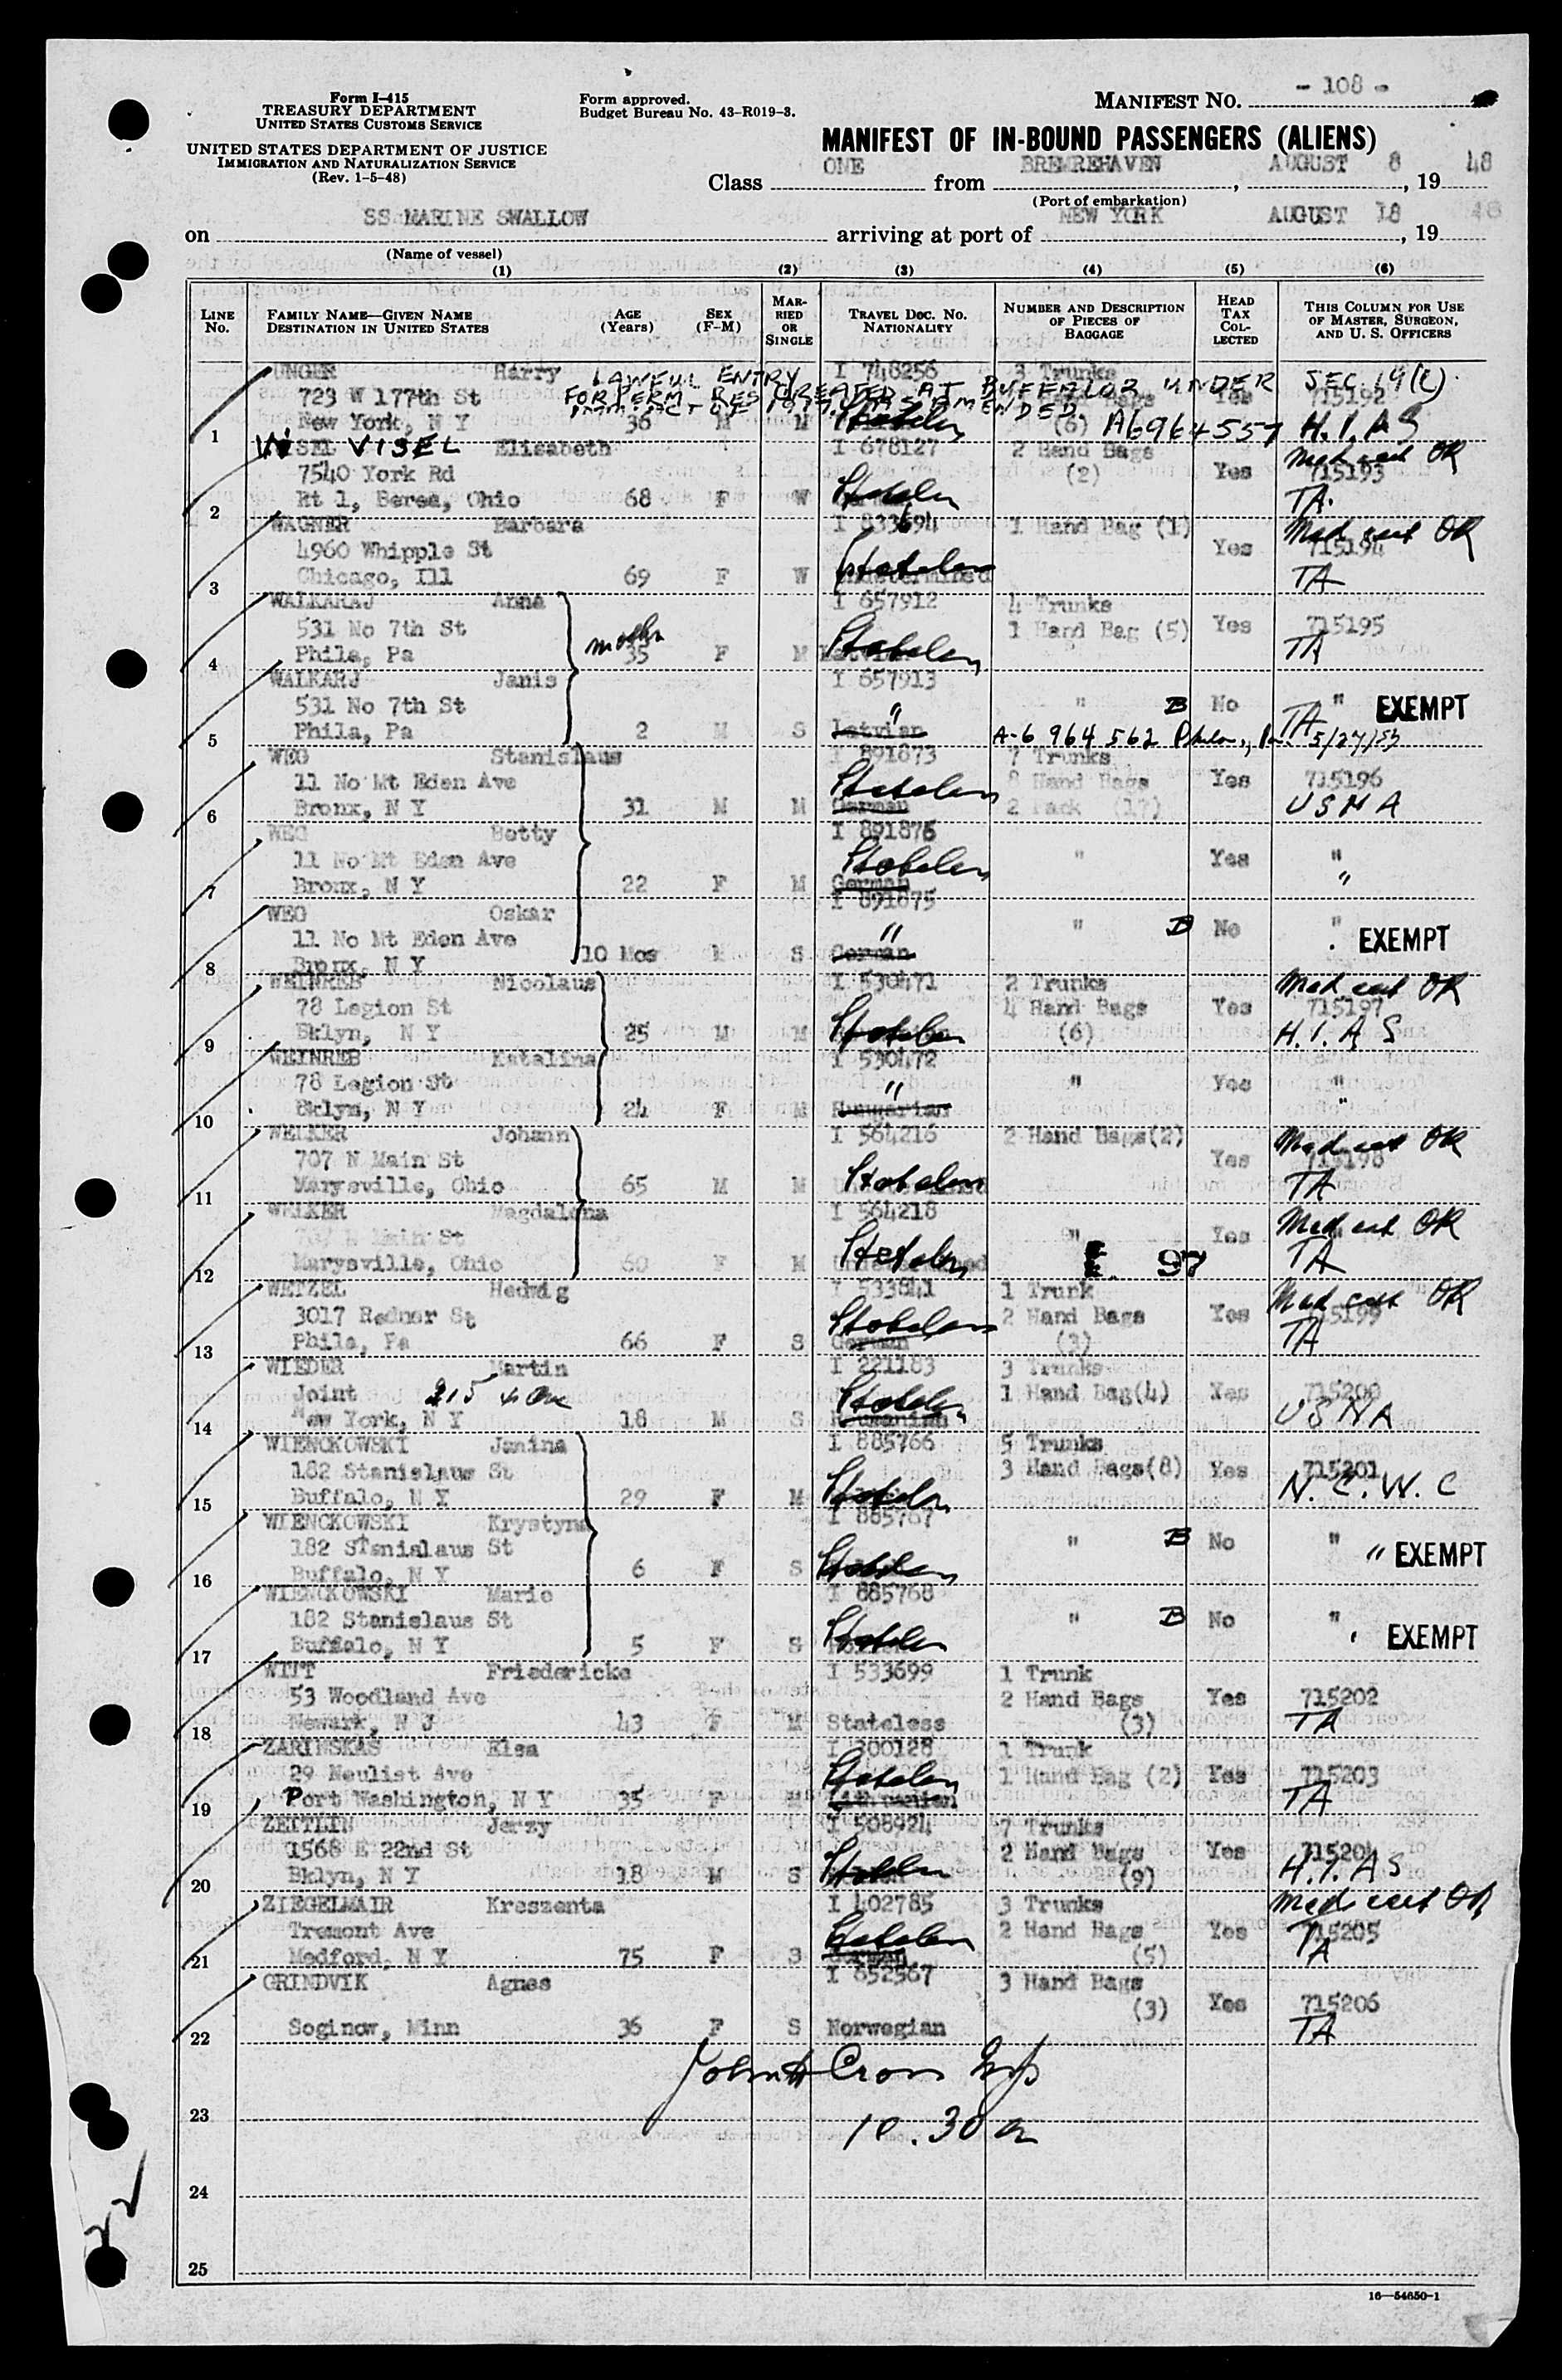 Form I-415
TREASURY DEPARTMENT
UNITED STATES CUSTOMS SERVICE
UNITED STATES DEPARTMENT OF JUSTICE
IMMIGRATION AND NATURALIZATION SERVICE
(Rev. 1-5-48)
Form approved.
Budget Bureau No. 43-R019-3.
MANIFEST NO. - 108 -
MANIFEST OF IN-BOUND PASSENGERS (ALIENS)
Class ONE from BREMREHAVEN, AUGUST 8, 19 48
(Port of embarkation)
on SS MARINE SWALLOW arriving at port of NEW YORK AUGUST 18, 19 48
(Name of vessel)
(1) (2) (3) (4) (5) (6)
LINE No. FAMILY NAME—GIVEN NAME DESTINATION IN UNITED STATES AGE (Years) SEX (F-M) MARRIED OR SINGLE TRAVEL DOC. NO. NATIONALITY NUMBER AND DESCRIPTION OF PIECES OF BAGGAGE HEAD TAX COLLECTED THIS COLUMN FOR USE OF MASTER, SURGEON, AND U. S. OFFICERS
UNGER Harry I 748256 3 Trunks
LAWFUL ENTRY FOR PERM RES CREATED AT BUFFALO UNDER SEC. 19(c)
723 W 177th St Bags Yes 715192
1 New York, N Y 36 M M (6) A6964557 H.I.A.S
SEL VISEL Elisabeth I 678127 2 Hand Bags Med cert OK
7540 York Rd (2) Yes 715193
2 Rt 1, Berea, Ohio 68 F W Stateless TA.
WAGNER Barbara I 833694 1 Hand Bag (1) Med cert OK
4960 Whipple St Yes 715194
3 Chicago, Ill 69 F W Stateless Undetermined TA
WALKARAJ Anna I 657912 4 Trunks
531 No 7th St 1 Hand Bag (5) Yes 715195
4 Phila, Pa mother 35 F M Stateless TA
WALKARJ Janis I 657913
531 No 7th St " " B No TA " EXEMPT
5 Phila, Pa 2 M S Latvian A-6 964 562 Phila., Pa. 5/27/53
WEG Stanislaus I 891873 7 Trunks
11 No Mt Eden Ave Stateless 8 Hand Bags Yes 715196
6 Bronx, N Y 31 M M German 2 Pack (17) USNA
WEG Betty I 891876
11 No Mt Eden Ave Stateless " Yes "
7 Bronx, N Y 22 F M German "
WEG Oskar I 891875
11 No Mt Eden Ave " " B No " EXEMPT
8 Bronx, N Y 10 Mos M S German
WEINREB Nicolaus I 530471 2 Trunks Med cert OK
78 Legion St 4 Hand Bags Yes 715197
9 Bklyn, N Y 25 M M Stateless (6) H.I.A.S
WEINREB Katalina I 530472
78 Legion St " " Yes "
10 Bklyn, N Y 24 F M Hungarian "
WELKER Johann I 564216 2 Hand Bags(2) Med cert OK
707 N Main St Yes 715198
11 Marysville, Ohio 65 M M Stateless TA
WELKER Magdalena I 564218 Med cert OK
707 N Main St " Yes
12 Marysville, Ohio 60 F M Stateless 97 TA
WETZEL Hedwig I 533841 1 Trunk Med cert OK
3017 Redner St 2 Hand Bags Yes 715199
13 Phila, Pa 66 F S Stateless German (3) TA
WIEDER Martin I 221183 3 Trunks
Joint 215 4 Ave Stateless 1 Hand Bag(4) Yes 715200
14 New York, N Y 18 M S Roumanian USNA
WIENCKOWSKI Janina I 885766 5 Trunks
182 Stanislaus St 3 Hand Bags(8) Yes 715201
15 Buffalo, N Y 29 F M Stateless N.C.W.C
WIENCKOWSKI Krystyna I 885767
182 Stanislaus St " B No " " EXEMPT
16 Buffalo, N Y 6 F S Stateless
WIENCKOWSKI Marie I 885768
182 Stanislaus St " B No " EXEMPT
17 Buffalo, N Y 5 F S Stateless
WITT Friedericke I 533699 1 Trunk
53 Woodland Ave 2 Hand Bags Yes 715202
18 Newark, N J 43 F M Stateless (3) TA
ZARINSKAS Elsa I 300128 1 Trunk
29 Neulist Ave Stateless 1 Hand Bag (2) Yes 715203
19 Port Washington, N Y 35 F M Lithuanian TA
ZEITLIN Jerzy I 508924 7 Trunks
1568 E 22nd St 2 Hand Bags Yes 715204
20 Bklyn, N Y 18 M S Stateless (9) H.I.A.S
ZIEGELMAIR Kreszenta I 402785 3 Trunks Med cert OK
Tremont Ave Stateless 2 Hand Bags Yes 715205
21 Medford, N Y 75 F S German (5) TA
GRINDVIK Agnes I 652567 3 Hand Bags
(3) Yes 715206
22 Soginow, Minn 36 F S Norwegian TA
John H Cross Insp
23
10.30 a
24
22
25
16—54650-1